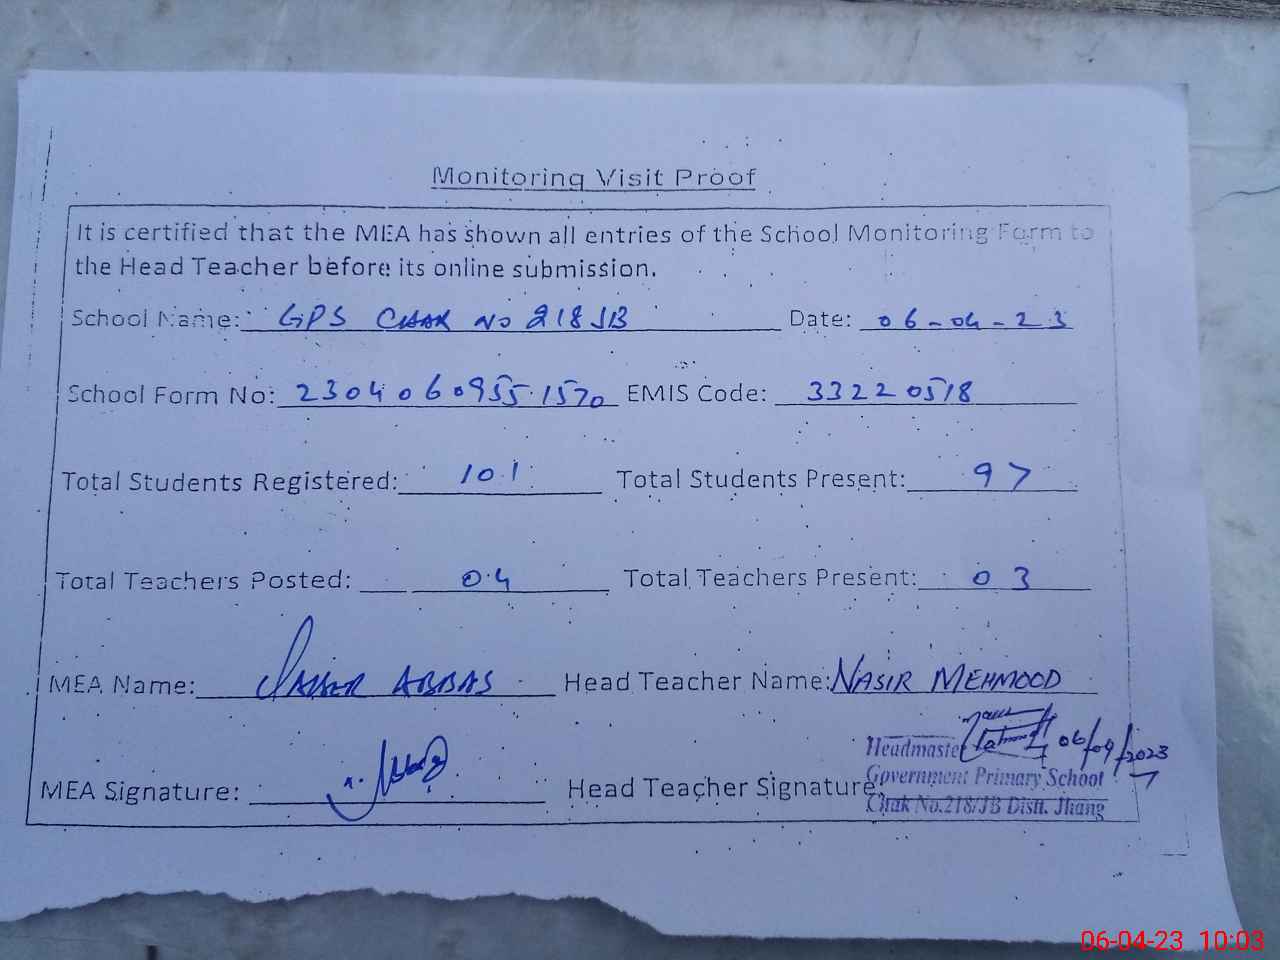 Monitoring Visit Proof
It is certified that the MEA has shown all entries of the School Monitoring Form to
the Head Teacher before its online submission.
School Name: GPS CHAK NO 218 JB Date: 06-04-23
School Form No: 23040609551570 EMIS Code: 33220518
Total Students Registered: 101 Total Students Present: 97
Total Teachers Posted: 04 Total Teachers Present: 03
MEA Name: ABBAS Head Teacher Name: NASIR MEHMOOD
MEA Signature: Head Teacher Signature:
06/04/2023
Headmaster
Government Primary School
Chak No.218/JB Distt. Jhang
06-04-23 10:03